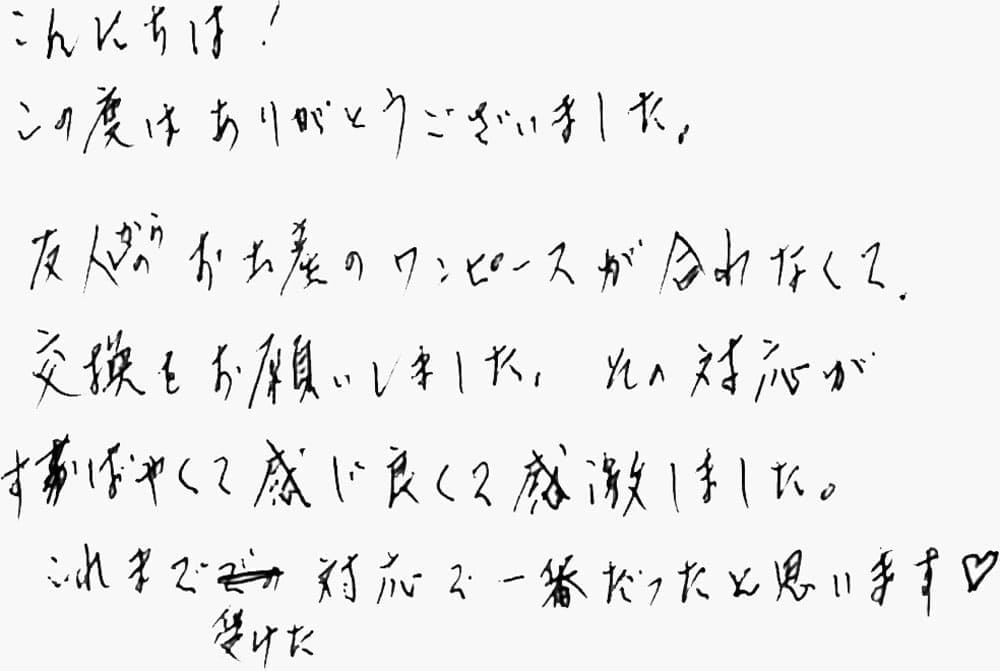 こんにちは!
この度はありがとうございました。
友人からのお土産のワンピースが合わなくて、
交換をお願いしました。その対応が
すばやくて感じ良くて感激しました。
これまで受けた対応で一番だったと思います♡